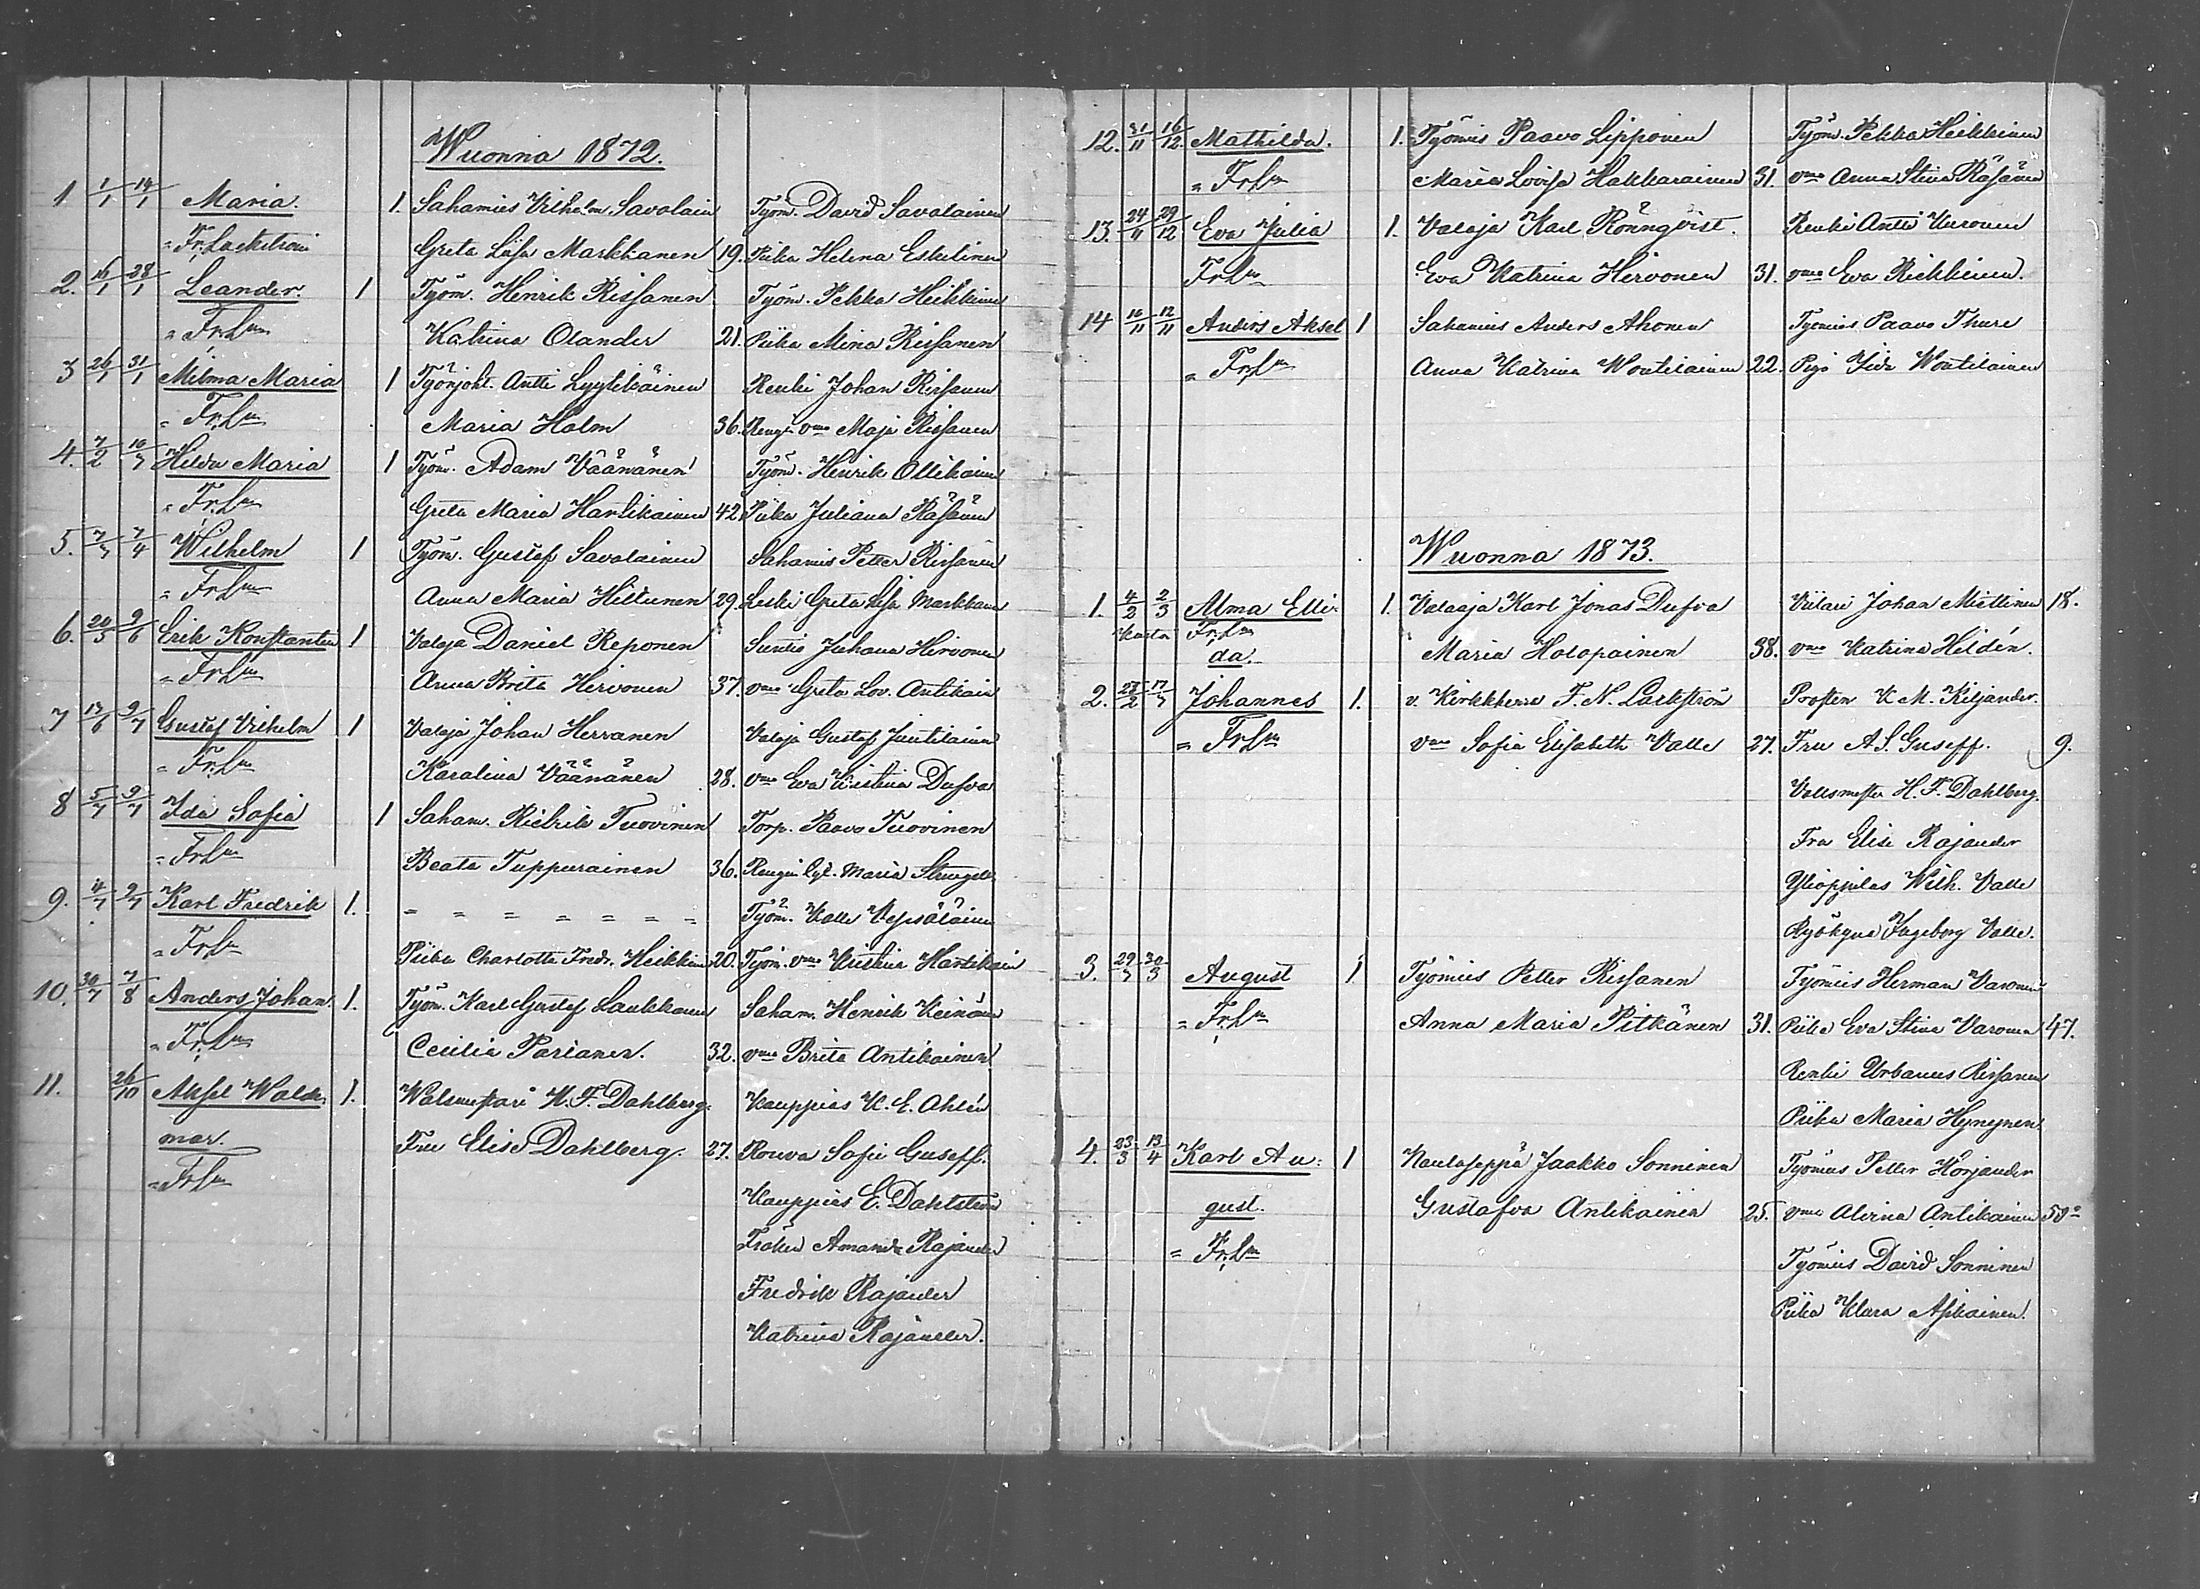 Wuonna 1872.
1 1/1 14/1 Maria. 1. Sahamies Vilhelm Savolain Työm. David Savolainen
" Fr. Lackström Greta Lisa Markkanen 19. Piika Helena Eskelinen
2. 16/1 28/1 Leander. 1 Työm. Henrik Rissanen Työm. Pekka Heikkinen
" Fr. Lm Katrina Olander 21. Piika Mina Rissanen
3 26/1 31/1 Milma Maria 1 Työnjoht. Antti Lyytikäinen Renki Johan Rissanen
" Fr. Lm Maria Holm 36. Rengin vmo Maja Rissanen
4. 7/2 10/3 Hilda Maria 1 Työm. Adam Väänänen Työm. Henrik Ollikainen
" Fr. Lm Greta Maria Hartikainen 42. Piika Juliana Räsänen
5. 7/3 7/4 Wilhelm 1 Työm. Gustaf Savolainen Sahamies Petter Rissanen
" Fr. Lm Anna Maria Hiltunen 29. Leski Greta Lisa Markkanen
6. 20/5 9/6 Erik Konstantin 1 Valaja Daniel Reponen Suntio Juhana Hirvonen
" Fr. Lm Anna Brita Hirvonen 37. vmo Greta Lov. Antikain
7 13/6 9/7 Gustaf Vilhelm 1 Valaja Johan Herranen Valaja Gustaf Juntilainen
" Fr. Lm Karolina Väänänen 28. vmo Eva Kristina Dufva
8 5/7 9/7 Ida Sofia 1 Saham. Riekrik Tuovinen Torp. Paavo Tuovinen
" Fr. Lm Beata Tuppurainen 36. Rengin Maria
9. 4/7 9/7 Karl Fredrik 1. " " " " " " " Työm. Kalle Vepsäläinen
" Fr. Lm Piika Charlotta Fredr. Heikkinen 20. Työm. vmo Kristina Hartikain
10. 30/7 7/8 Anders Johan. 1. Työm. Karl Gustaf Laukkanen Saham. Henrik Keinänen
" Fr. Lm Cecilia Parianen. 32. vmo Brita Antikainen
11. 26/10 Aksel Walde- 1. Walsmestari H. F. Dahlberg. Kauppias K. E. Ahlén
mar. Fru Elise Dahlberg. 27. Rouva Sofie Guseff.
" Fr. Lm
Kauppias E. Dahlström
Fröken Amanda Rajander
Fredrik Rajander
Katrina Rajander.
12. 31/11 16/12 Mathilda. 1. Työmies Paavo Lipponen Työm. Pekka Heikkinen
" Fr. Lm Maria Lovisa Hakkarainen 31. vmo Anna Stina Räsänen
13. 24/11 29/12 Eva Julia 1. Valaja Karl Rönnqvist. Renki Antti Vuronen
Fr. Lm Eva Katrina Hirvonen 31. vmo Eva Rickkinen.
14 10/11 12/11 Anders Aksel 1 Sahamies Anders Ahonen Työmies Paavo Thure
" Fr. Lm Anna Katrina Woutilainen 22. Piga Ida Woutilainen
Wuonna 1873.
1. 4/2 2/3 Alma Elli- 1. Valaaja Karl Jonas Dufva Viilari Johan Miettinen 18.
Fr. Lm
da. Maria Holopainen 38. vmo Katrina Hildén.
2. 27/2 17/3 Johannes 1. v. Kirkkherra F. N. Lackström Prosten K. M. Kiljander.
" Fr. Lm vmo Sofia Elisabeth Valle 27. Fru A. S. Guseff. 9.
Valsmestr H. F. Dahlberg.
Fru Elise Rajander
Ylioppilas Wilh. Valle
Ryökynä Ingeborg Valle.
3. 29/3 30/3 August 1 Työmies Petter Rissanen Työmies Herman Varonen
" Fr. Lm Anna Maria Pitkänen 31. Piika Eva Stina Varonen 47.
Renki Urbanus Rissanen
Piika Maria Hynynen.
4. 23/3 13/4 Karl Au- 1 Naulaseppä Jaakko Sonninen Työmies Petter Hörjander
gust. Gustafva Antikainen 25. vmo Alvina Antikainen 50
" Fr. Lm Työmies David Sonninen
Piika Klara Asikainen.